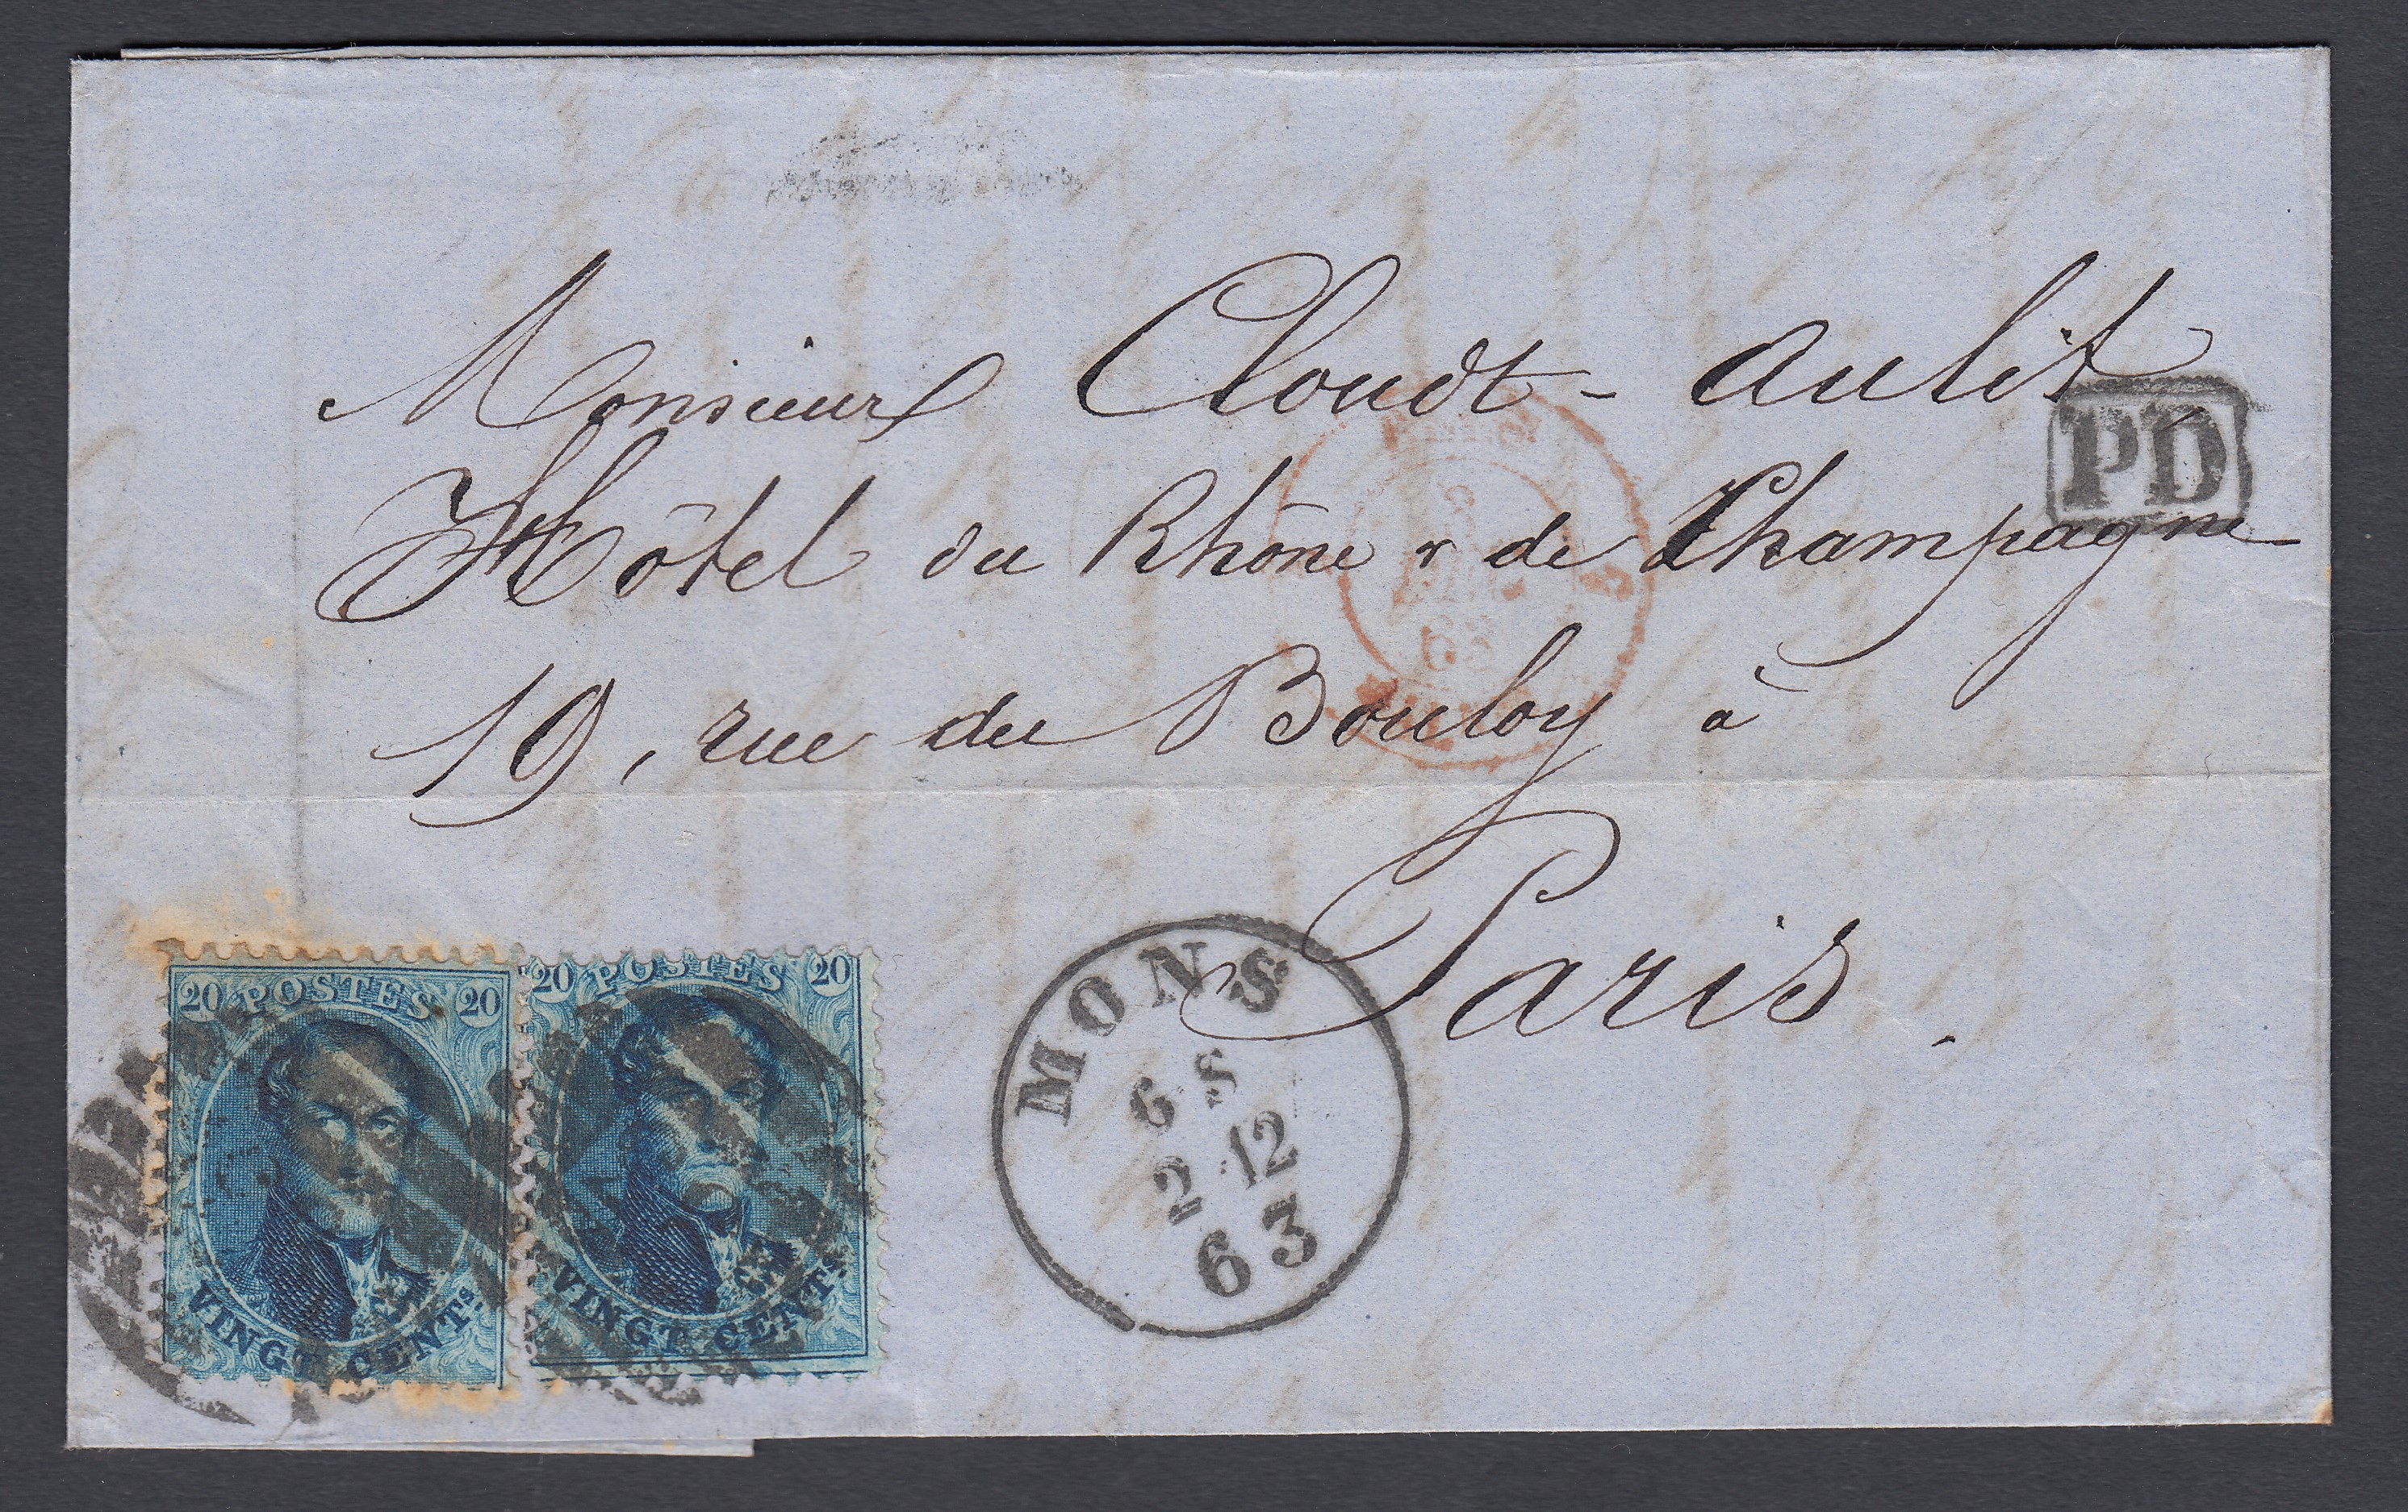 Monsieur Cloudt - Aulit
PD
Hôtel du Rhône & de Champagne
19, rue du Bouloy à
Paris.
20 POSTES 20
VINGT CENTS
20 POSTES 20
VINGT CENTS
MONS
6 S
2 12
63